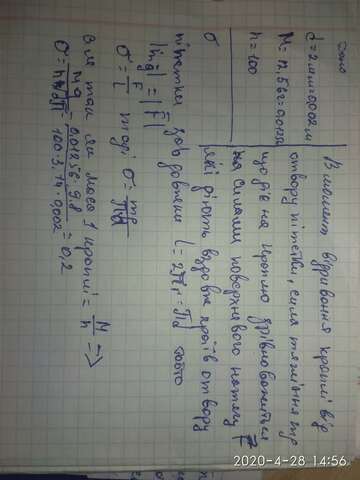 Дано
d = 2мм = 0,002м
M = 12,5гр = 0,0125
n = 100
σ
В момент відривання краплі від
отвору піпетки, сила тяжіння mg
що діє на краплю зрівноважиться
силами поверхневого натягу F
які діють вздовж країв отвору
піпетки довжини l = 2πr = πd тобто
|mg| = |F|
σ = F/l тоді σ = mg/πd
так як маса 1 краплі = M/n =>
σ = Mg/nπd = 0,0125·9,8/100·3,14·0,002 = 0,2
2020-4-28 14:56